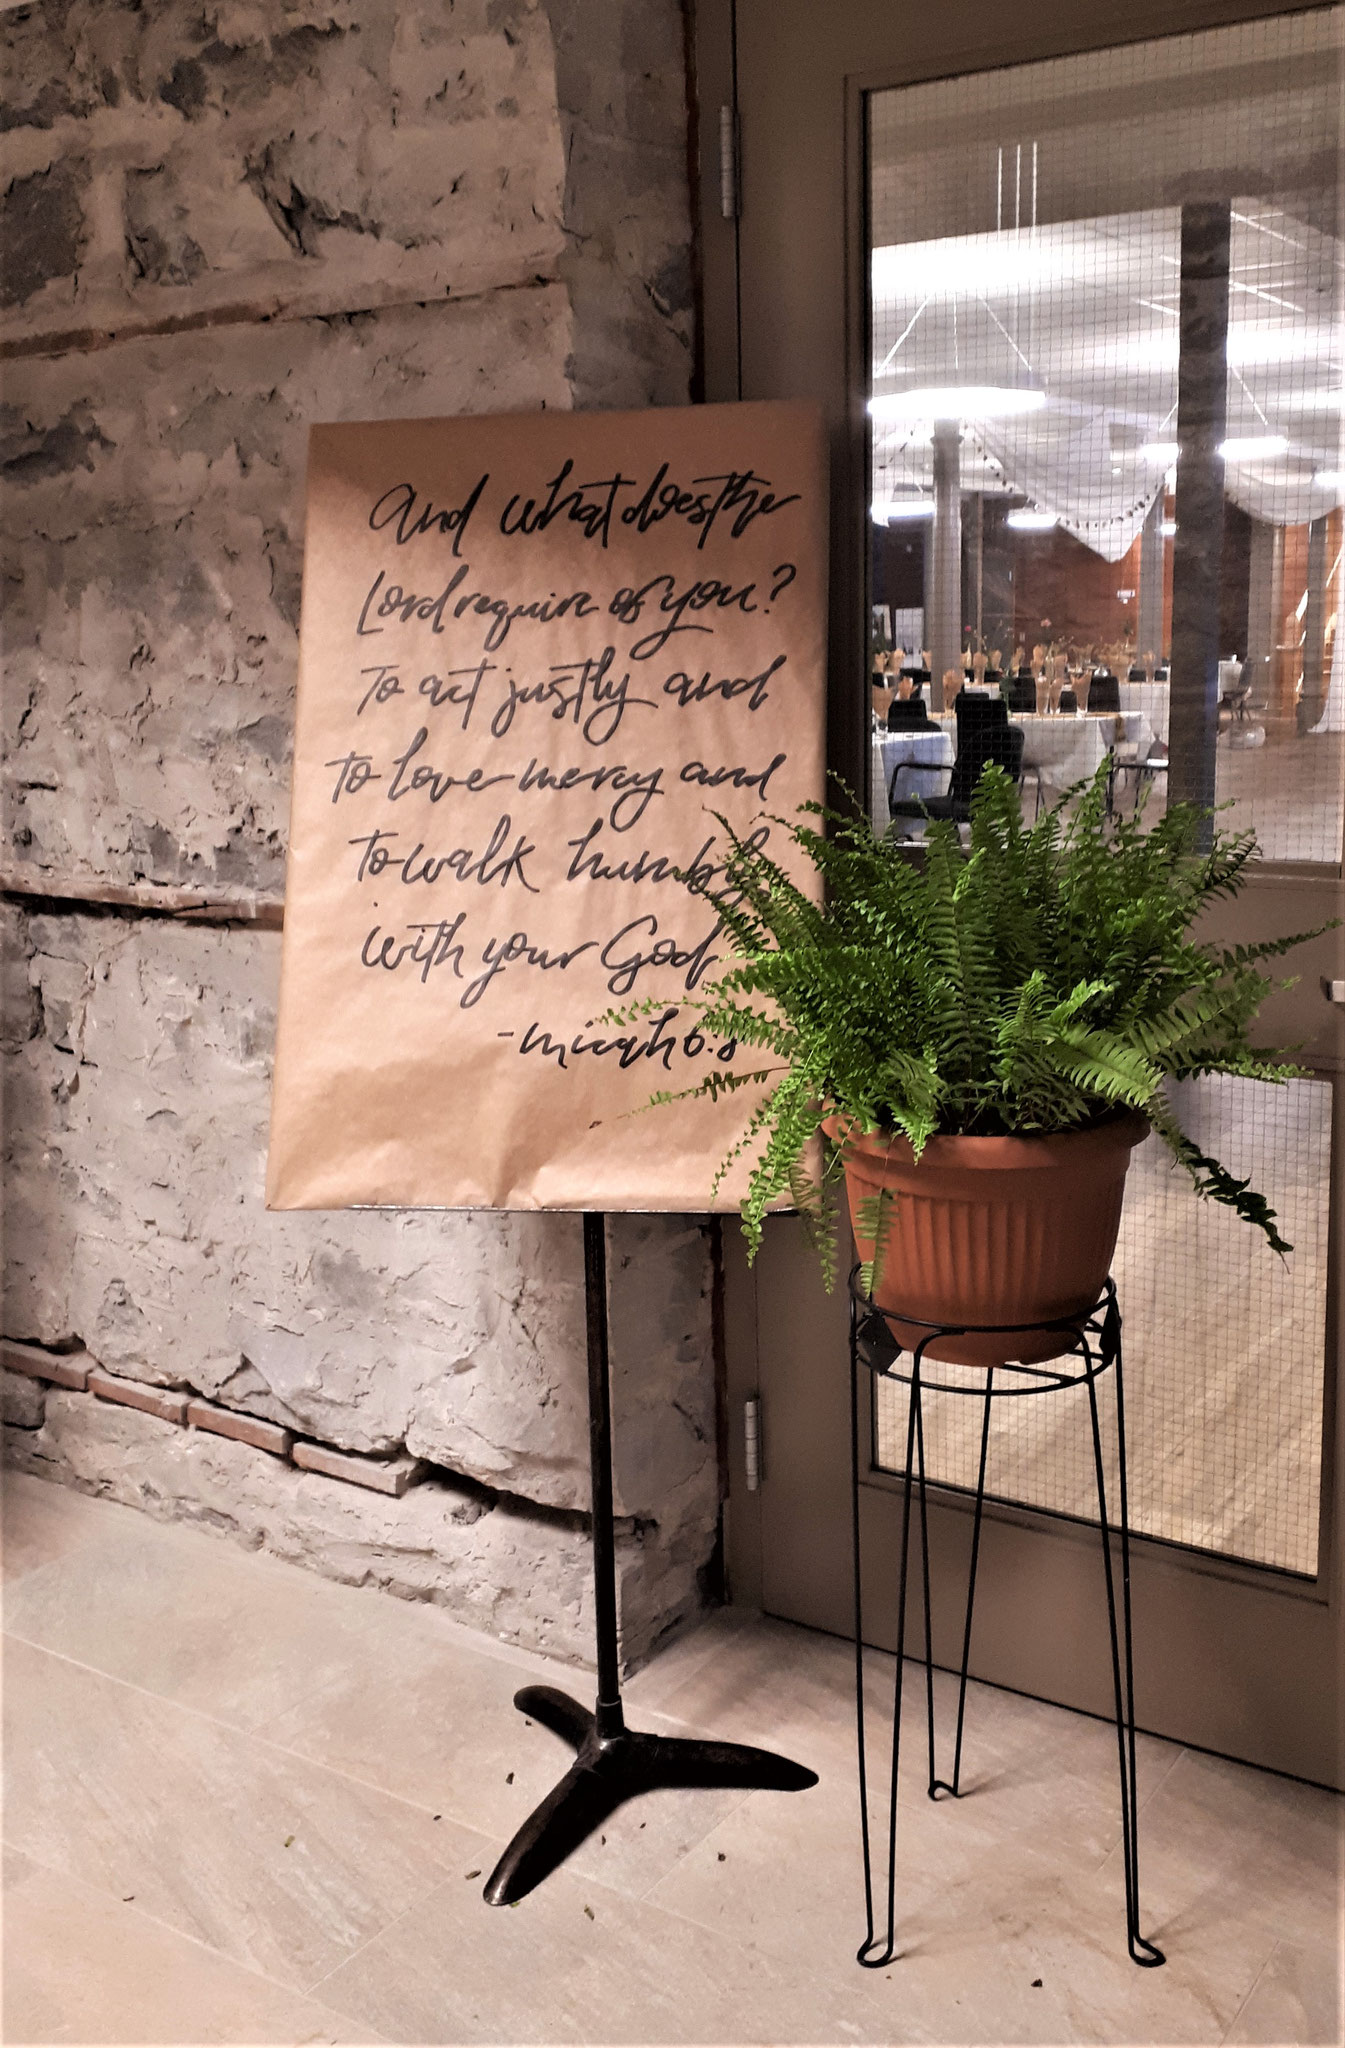 And what does the
Lord require of you?
To act justly and
to love mercy and
to walk humbly
with your God
-micah 6.8